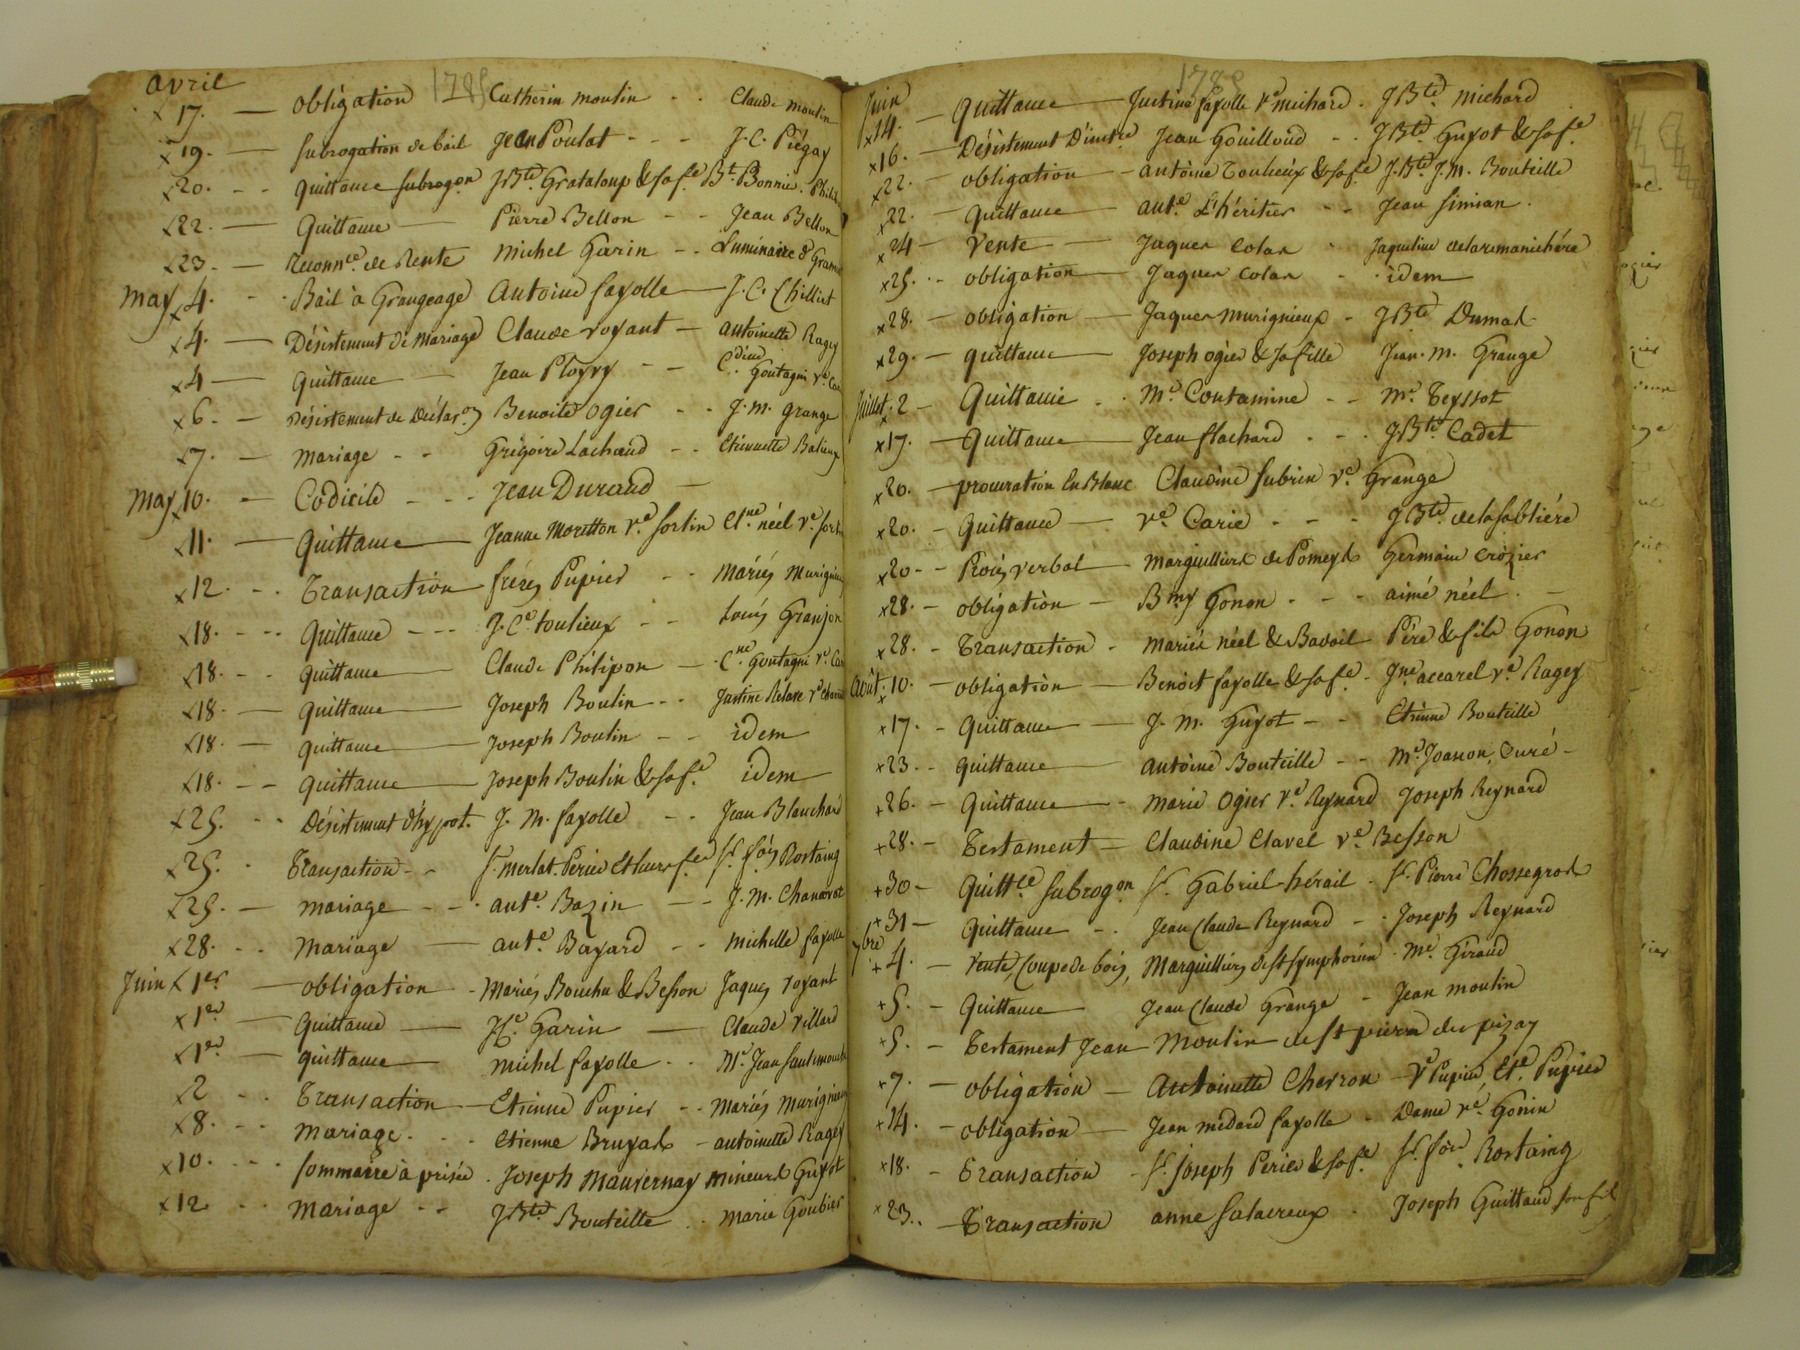 avril 178
17. obligation Catherin moulin Claude moulin
19. subrogation de bail Jean Poulat J. C. Piégay
20. quittance subrogon JBte Grataloup & sa fe Bt Bonnie
22. Quittance Pierre Bellon Jean Bellon
23. Reconnce de Rente Michel Garin Luminaire d
May 4. Bail à Grangeage Antoine fayolle J. C. Chillet
4. Désistement de Mariage Claude voyant antoinette Ragey
4 Quittance Jean Ployry Goutagni ve
6. Désistement de Benoite ogier J. M. grange
7. Mariage Grégoire Lachaud Etiennette
May 10. Codicile Jean Durand
11. Quittance Jeanne Moretton Ve sortin néel ve
12. Transaction frères Pupier Mariés Murigneux
18. Quittance J. Ce toulieux Louis Granjon
18. quittance Claude Philipon Cne Goutagni ve
18. quittance Joseph Boulin Justine
18. quittance Joseph Boulin idem
18. quittance Joseph Boulin & sa fe idem
25. Désistement d'hypot. J. M. fayolle Jean Blanchard
25. Transaction Sr merlat. Perier et leurs fes Sr fois Rostaing
25. mariage ante Bazin J. M. Chanavat
28. Mariage ante Bayard michelle fayolle
Juin 1er obligation Mariés Bouchu & Besson Jaques voyant
1er Quittance Garin Claude villard
1er quittance michel fayolle Mr Jean
2 Transaction Etienne Pupier Mariés Murigneux
8. Mariage. Etienne Bruyas antoinette Ragey
10. sommaire à prisée. Joseph Mauvernay mineurs Guyot
12 Mariage JBte Bouteille marie Goubier
178
Juin 14. Quittance Justine fayolle ve michard. JBte michard
16. Désistement Jean Gouilloud JBte Guyot & sa fe
22. obligation antoine Toulieux & sa fe J. Bte J. M. Bouteille
22. Quittance ante L'héritier Jean simian.
24 Vente Jaques Colas Jaqueline
25. obligation Jaques Colas idem
28. obligation Jaques Murignieux JBte Dumas
29. quittance Joseph ogier & sa fille Jean. M. Grange
Juillet. 2 Quittance Me Contamine Me Teyssot
17. Quittance Jean flachard JBte Cadet
20. procuration En Blanc Claudine subrin ve Grange
20. Quittance ve Carie JBte delasabliére
20 Procès verbal Marguilliers de Pomeys Germain Crozier
28. obligation Bmy Gonon aimé néel.
28. Transaction Mariés néel & Bavoil Père & fils Gonon
Août. 10. obligation Benoit fayolle & sa fe Jne accarel ve Ragey
17. Quittance J. M. Guyot Etienne Bouteille
23. quittance antoine Bouteille Me Joanon, Curé
26. Quittance marie ogier ve Reynard Joseph Reynard
28. Testament Claudine Clavel ve Besson
30 Quittce subrogon Sr Gabriel hérail Sr Pierre Chossegros
31 Quittance Jean Claude Reynard Joseph Reynard
7bre 4. vente, Coupe de bois, Marguilliers de st symphorien Me Giraud
5. Quittance Jean Claude Grange Jean moulin
5. Testament Jean Moulin de st pierre
7. obligation Antoinette Cherron ve Pupier, Ete Pupier
14. obligation Jean medard fayolle Dame ve Gonin
18. Transaction Sr Joseph Perier & sa fe Sr fois Rostaing
23. Transaction anne salacreux Joseph Guittaud son fils